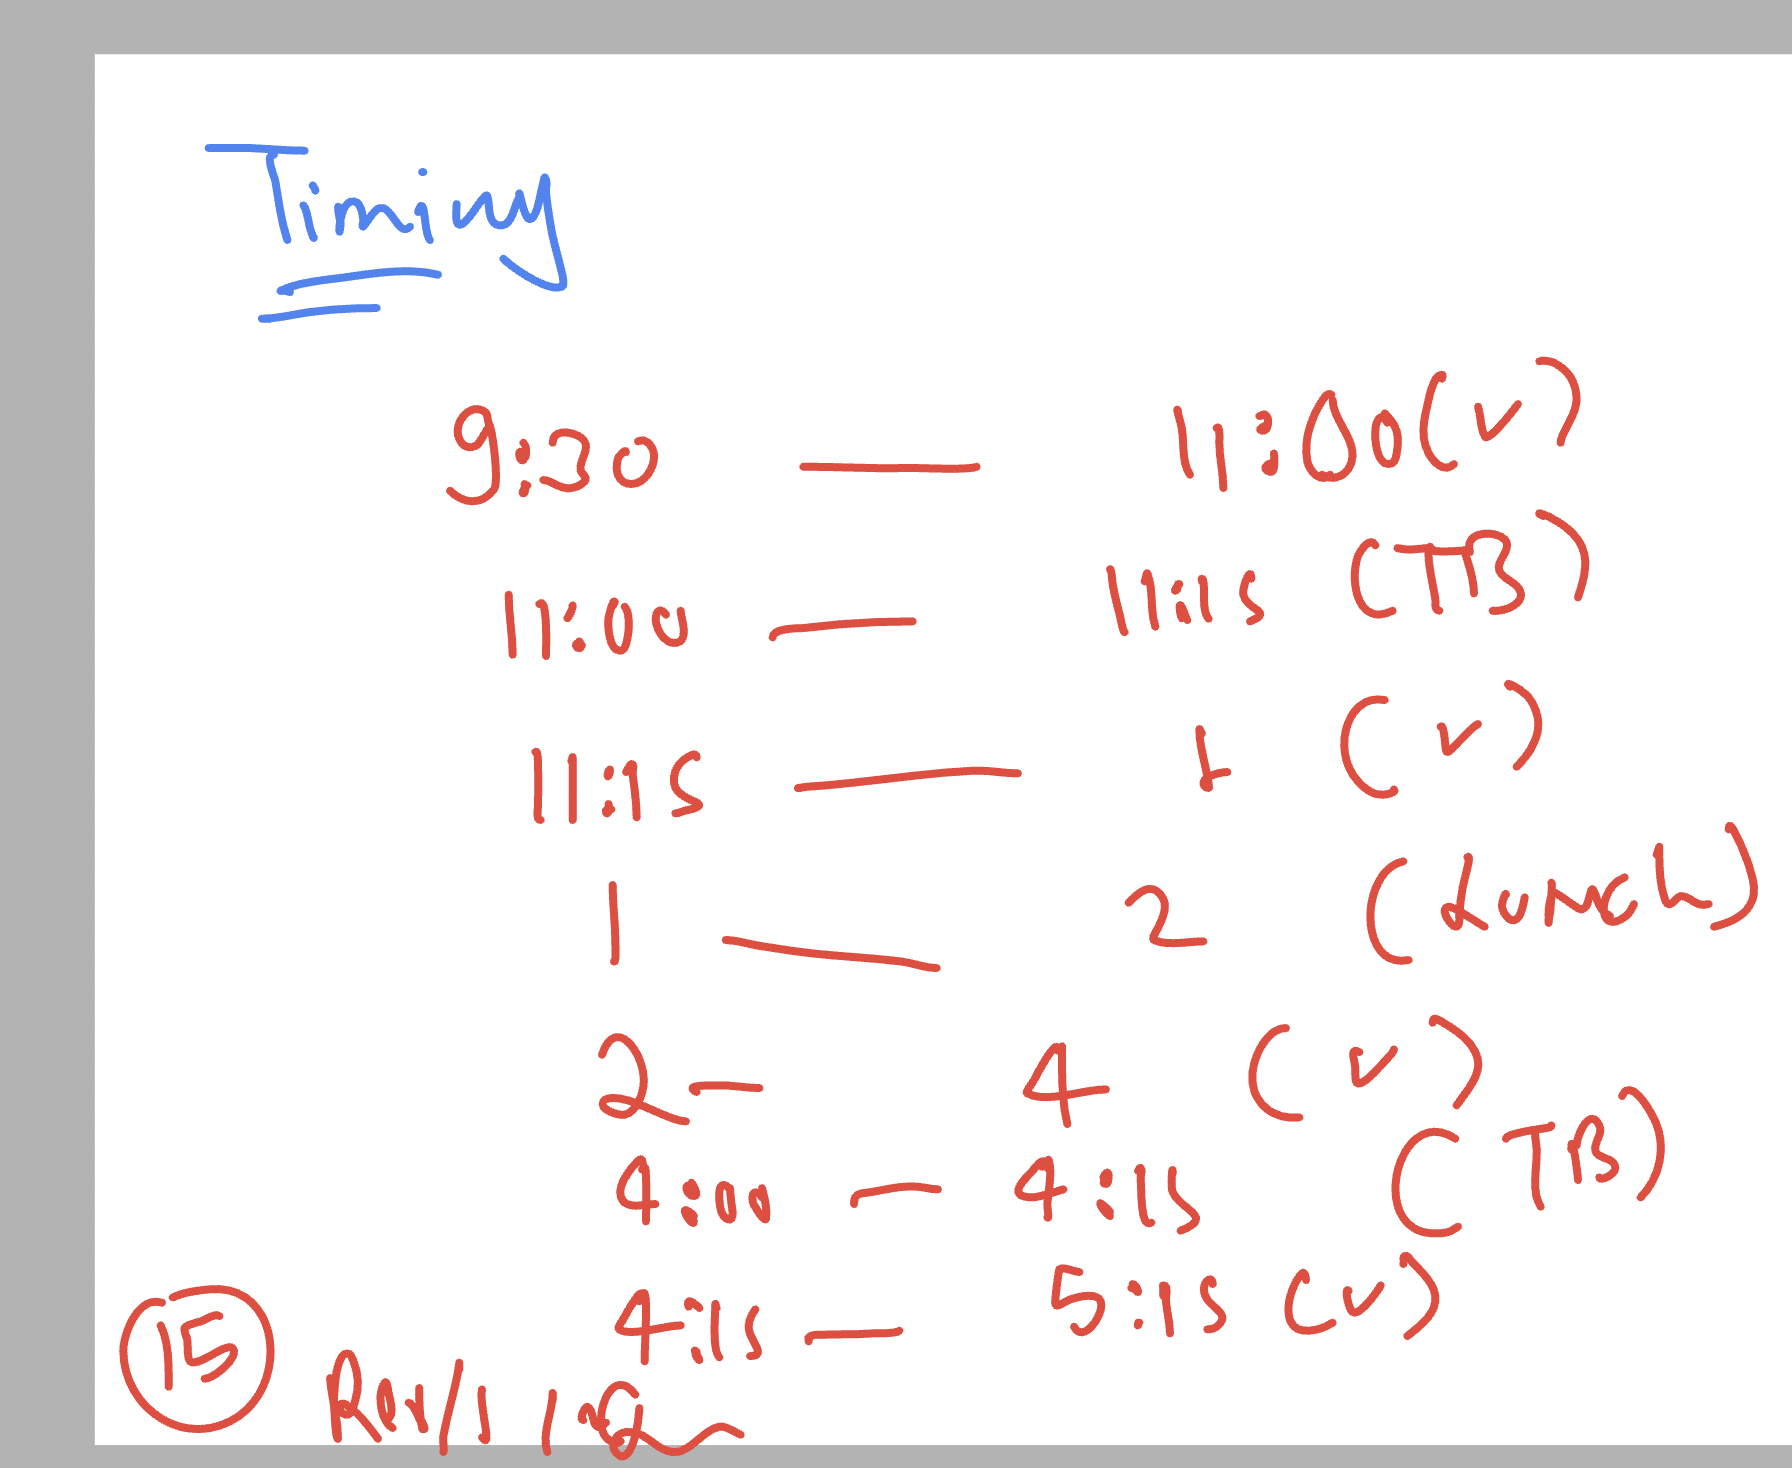 Timing
9:30 — 11:00 (✓)
11:00 — 11:15 (TB)
11:15 — 1 (✓)
1 — 2 (LUNCH)
2 — 4 (✓)
4:00 — 4:15 (TB)
4:15 — 5:15 (✓)
15